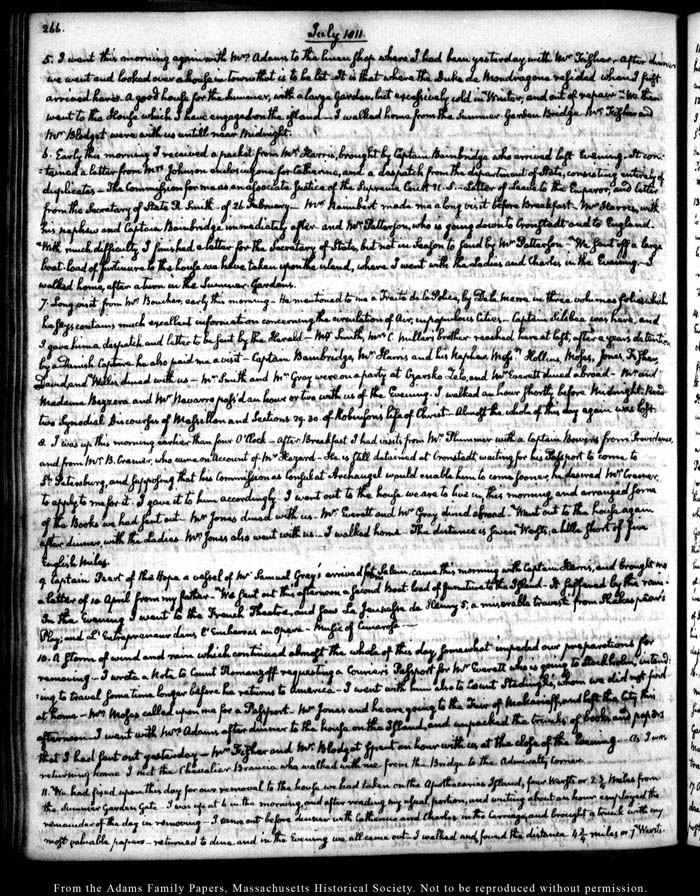 266.
July 1811.
5. I went this morning again with Mrs Adams to the linen shop where I had been yesterday with Mr Fisher. After dinner
we went and looked over a house in town that is to be let. It is that where the Duke de Mondragone resided when I first
arrived here. A good house for the Summer, with a large Garden, but excessively cold in Winter, and out of repair. We then
went to the House which I have engaged on the island. I walked home from the Summer Garden Bridge. Mr Fisher and
Mr Blodget were with us untill near Midnight.
6. Early this morning I received a packet from Mr Harris, brought by Captain Bainbridge who arrived last Evening. It con-
tained a letter from Mrs Johnson enclosing one for Catherine, and a despatch from the department of State, consisting entirely of
duplicates — The Commission for me as an associate Justice of the Supreme Court U.S. — Letter of Leave to the Emperor, and letter
from the Secretary of State R. Smith of 26 February — Mr Raimbert made me a long visit before Breakfast. Mr Harris, with
his nephew and Captain Bainbridge immediately after and Mr Patterson, who is going down to Cronstadt and to England.
With much difficulty I finished a letter for the Secretary of State, but not in Season to send by Mr Patterson. We sent off a large
boat-load of furniture to the house we have taken upon the island, where I went with the Ladies and Charles in the Evening. I
walked home, after a turn in the Summer Gardens.
7. Long visit from Mr early this morning — He mentioned to me a Traité de la Police, by De la Marre in three volumes folio which
he says contains much excellent information concerning the circulation of Air, in populous Cities — Captain was here, and
I gave him a despatch and letter to be sent by the Herald — Mr Smith, Mr C. brother reached here at last, after a years detention
by a Danish Capture he also paid me a visit — Captain Bainbridge, Mr Harris and his Nephew, Messrs Hollins, Moses, Jones, Fisher,
and Willis dined with us — Mr Smith and Mr Gray were on a party at Czarsko Zelo, and Mr Everett dined abroad — Mr and
Madame Bezzera and Mr Navarro pass'd an hour or two with us of the Evening. I walked an hour shortly before Midnight. Read
two Synodial Discourses of Massillon and Sections 29. 30. of Robinson's life of Christ — Almost the whole of this day again was lost.
8. I was up this morning earlier than four O'Clock — After Breakfast I had visits from Mr Plummer with a Captain Bowers from Providence,
and from Mr B. Cramer, who came on Account of Mr Hazard — He is still detained at Cronstadt waiting for his Passport to come to
St Petersburg, and supposing that his Commission as Consul at Archangel would enable him to come sooner, he desired Mr Cramer,
to apply to me for it. I gave it to him accordingly. I went out to the house we are to live in, this morning and arranged some
of the Books we had sent out. Mr Jones dined with us. Mr Everett and Mr Gray dined abroad. Went out to the house again
after dinner, with the Ladies. Mr Jones also went with us. I walked home. The distance is seven Wersts, a little short of five
English miles.
9. Captain Peart of the Hope a vessel of Mr Samuel Gray's arrived from Salem, came this morning with Captain Harris, and brought me
a letter of 10 April from my father. We sent out this afternoon a second boat load of furniture to the Island. It suffered by the rain.
In the Evening I went to the French Theatre, and saw La Jeunesse de Henry 5, a miserable travesti from Shakespear's
Play; and L'Entrepreneur dans l'Embarras an Opera — Music of Cimarosa —
10. A Storm of wind and rain which continued almost the whole of this day, somewhat impeded our preparations for
removing — I wrote a Note to Count Romanzoff requesting a Courier's Passport for Mr Everett who is going to Stockholm, intend-
ing to travel some time longer before he returns to America — I went with him also to Count Stedingk's, whom we did not find
at home — Mr Moses called upon me for a Passport. Mr Jones and he are going to the Fair of Makarieff, and left the City this
afternoon. I went with Mrs Adams after dinner to the house on the Island, and unpacked the trunks of books and papers
that I had sent out yesterday — Mr Fisher and Mr Blodget spent an hour with us at the close of the Evening — As I was
returning home I met the Chevalier Brancia who walked with me from the Bridge to the Admiralty corner.
11. We had fixed upon this day for our removal to the house we had taken on the Apothecaries Island, four Wersts or 2 3/4 Miles from
the Summer Garden Gate. I was up at 4 in the morning, and after reading my usual portion, and writing about an hour employed the
remainder of the day in removing — I came out before dinner with Catherine and Charles in the Carriage, and brought a trunk with my
most valuable papers — returned to dine and in the Evening we all came out. I walked and found the distance 4 3/4 miles or 7 Wersts.
From the Adams Family Papers, Massachusetts Historical Society. Not to be reproduced without permission.